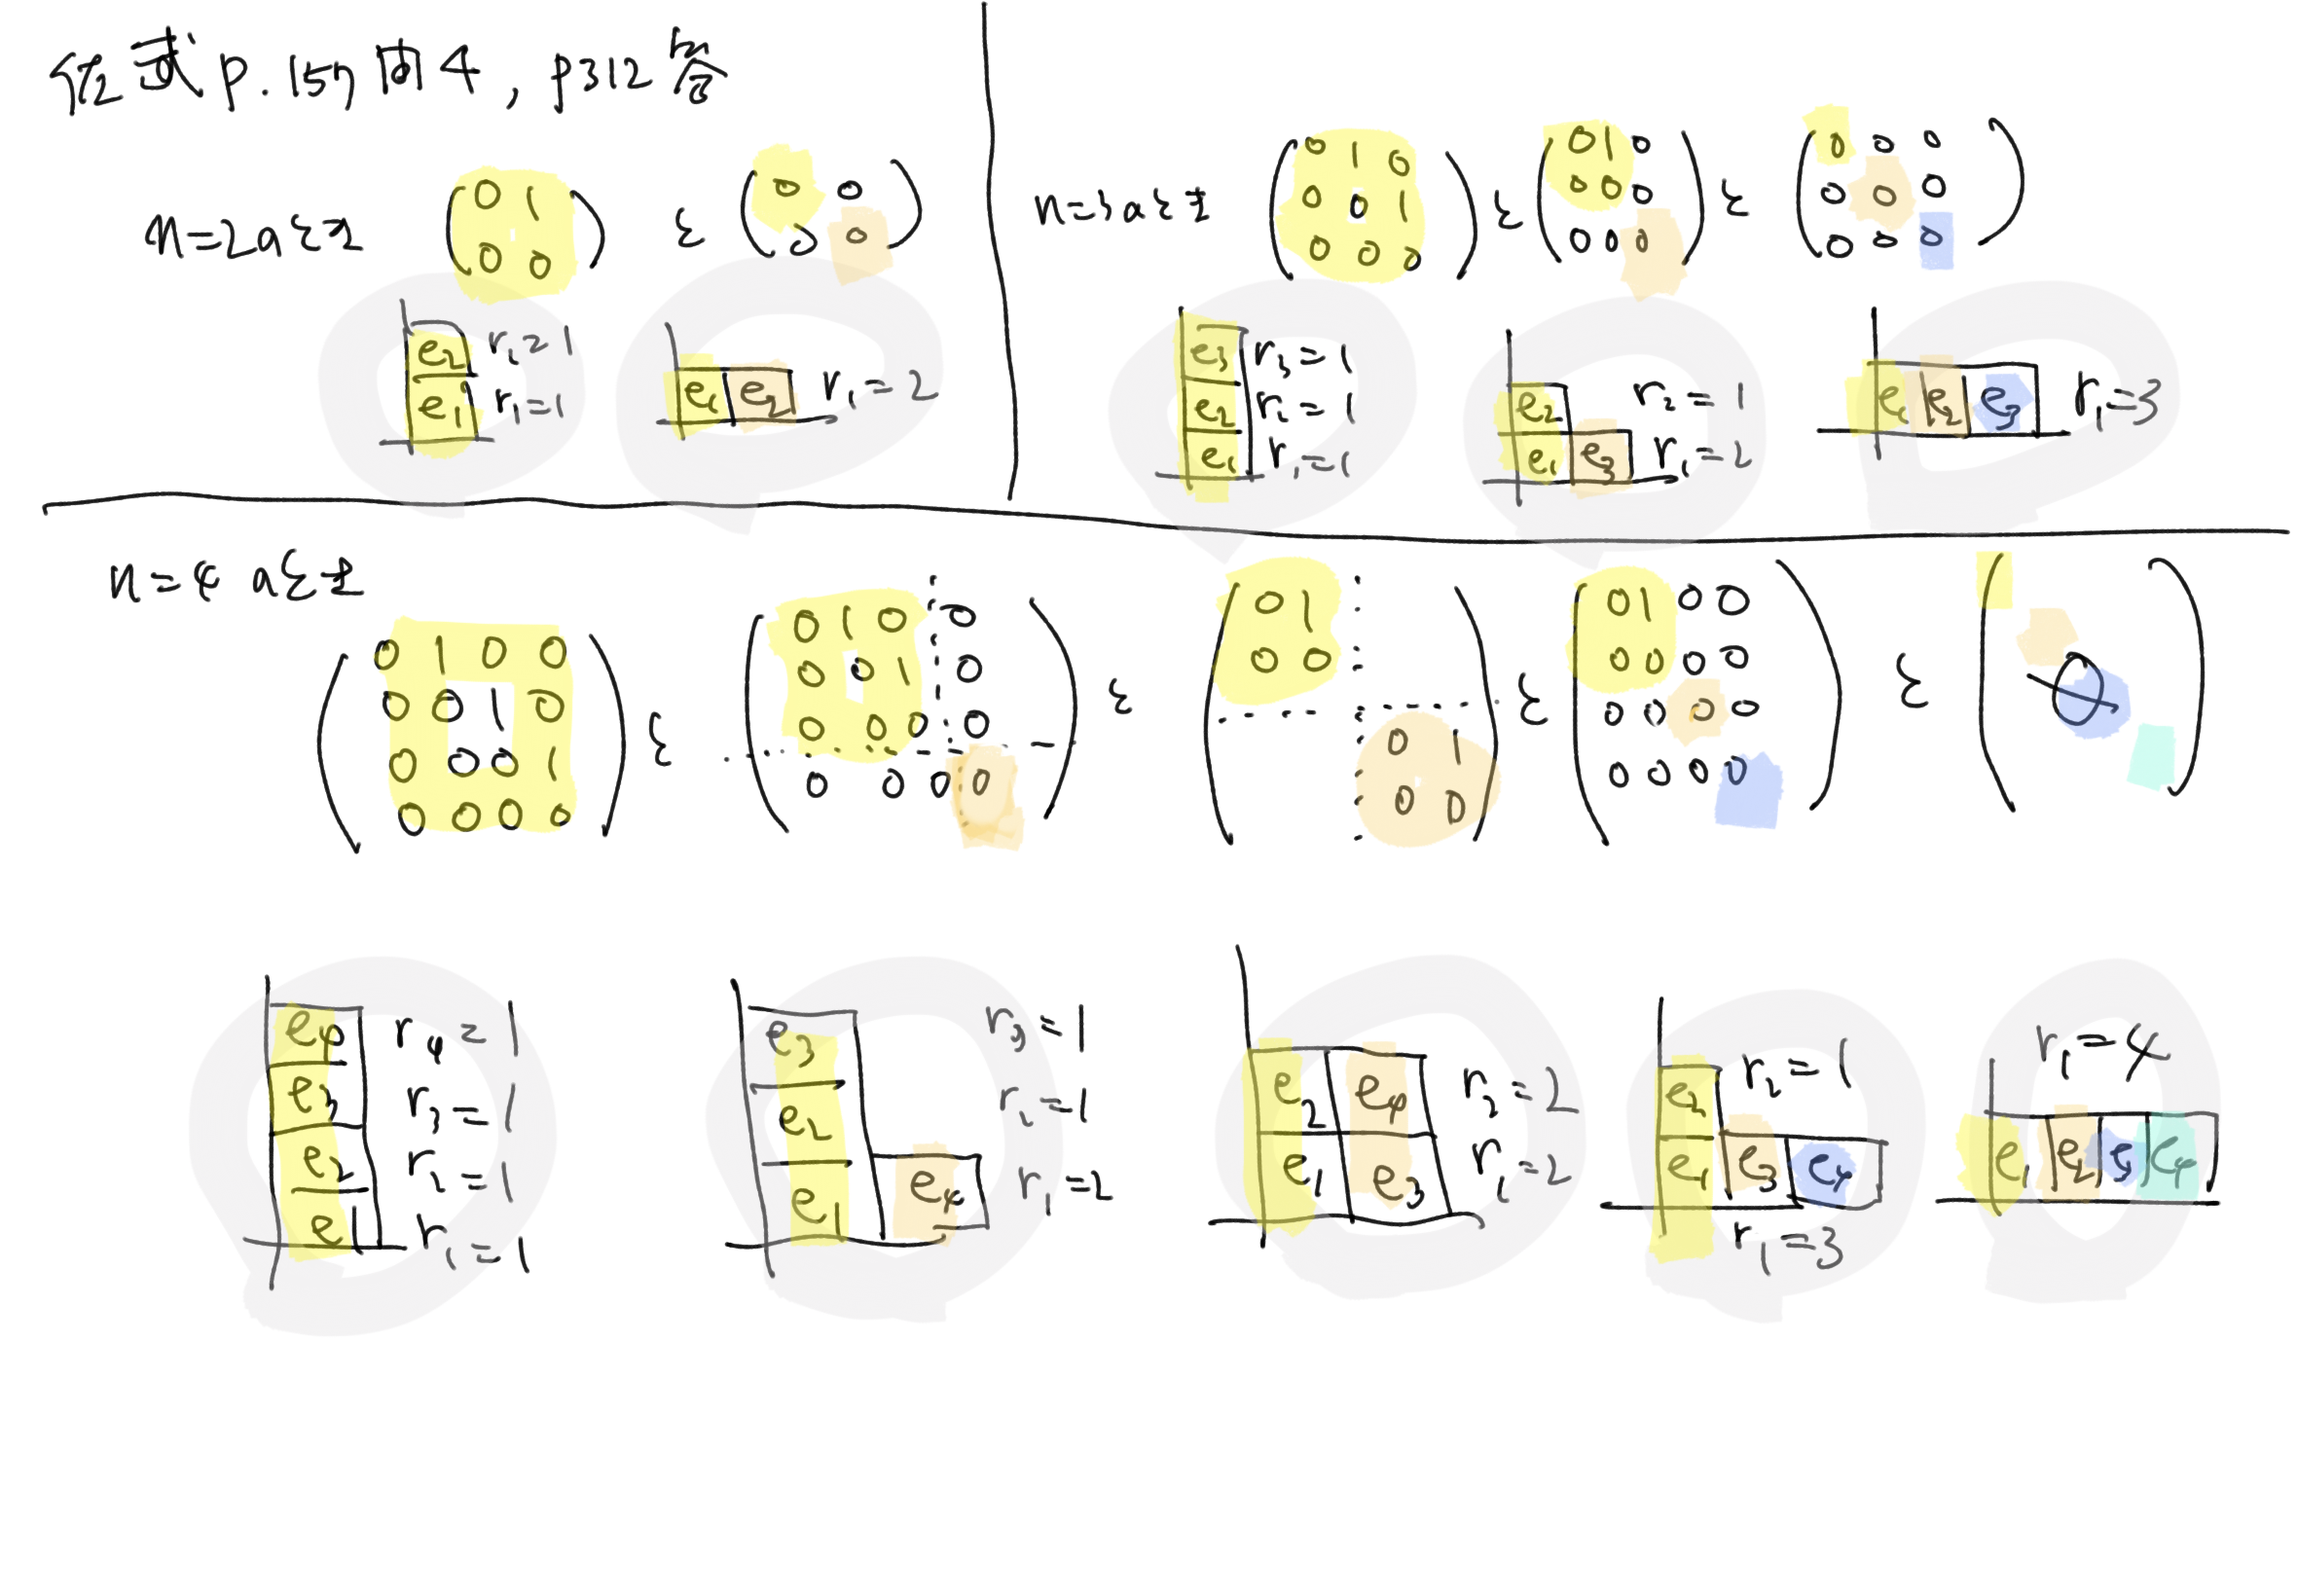 佐武 p.157 問4, p312 答
n=2のとき
( 0 1
0 0 )
と
( 0 0
0 0 )
e2 r2=1
e1 r1=1
e1 e2 r1=2
n=3のとき
( 0 1 0
0 0 1
0 0 0 )
と
( 0 1 0
0 0 0
0 0 0 )
と
( 0 0 0
0 0 0
0 0 0 )
e3 r3=1
e2 r2=1
e1 r1=1
e2 r2=1
e1 e3 r1=2
e1 e2 e3 r1=3
n=4のとき
( 0 1 0 0
0 0 1 0
0 0 0 1
0 0 0 0 )
と
( 0 1 0 0
0 0 1 0
0 0 0 0
0 0 0 0 )
と
( 0 1
0 0
0 1
0 0 )
と
( 0 1 0 0
0 0 0 0
0 0 0 0
0 0 0 0 )
と
( 0 )
e4 r4=1
e3 r3=1
e2 r2=1
e1 r1=1
e3 r3=1
e2 r2=1
e1 e4 r1=2
e2 e4 r2=2
e1 e3 r1=2
e2 r2=1
e1 e3 e4
r1=3
r1=4
e1 e2 e3 e4